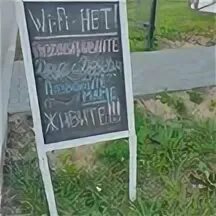 Wi-Fi - НЕТ!
РАЗГОВАРИВАЙТЕ
ДРУГ С ДРУГОМ
ПОЗВОНИТЕ
МАМЕ
ЖИВИТЕ!!!